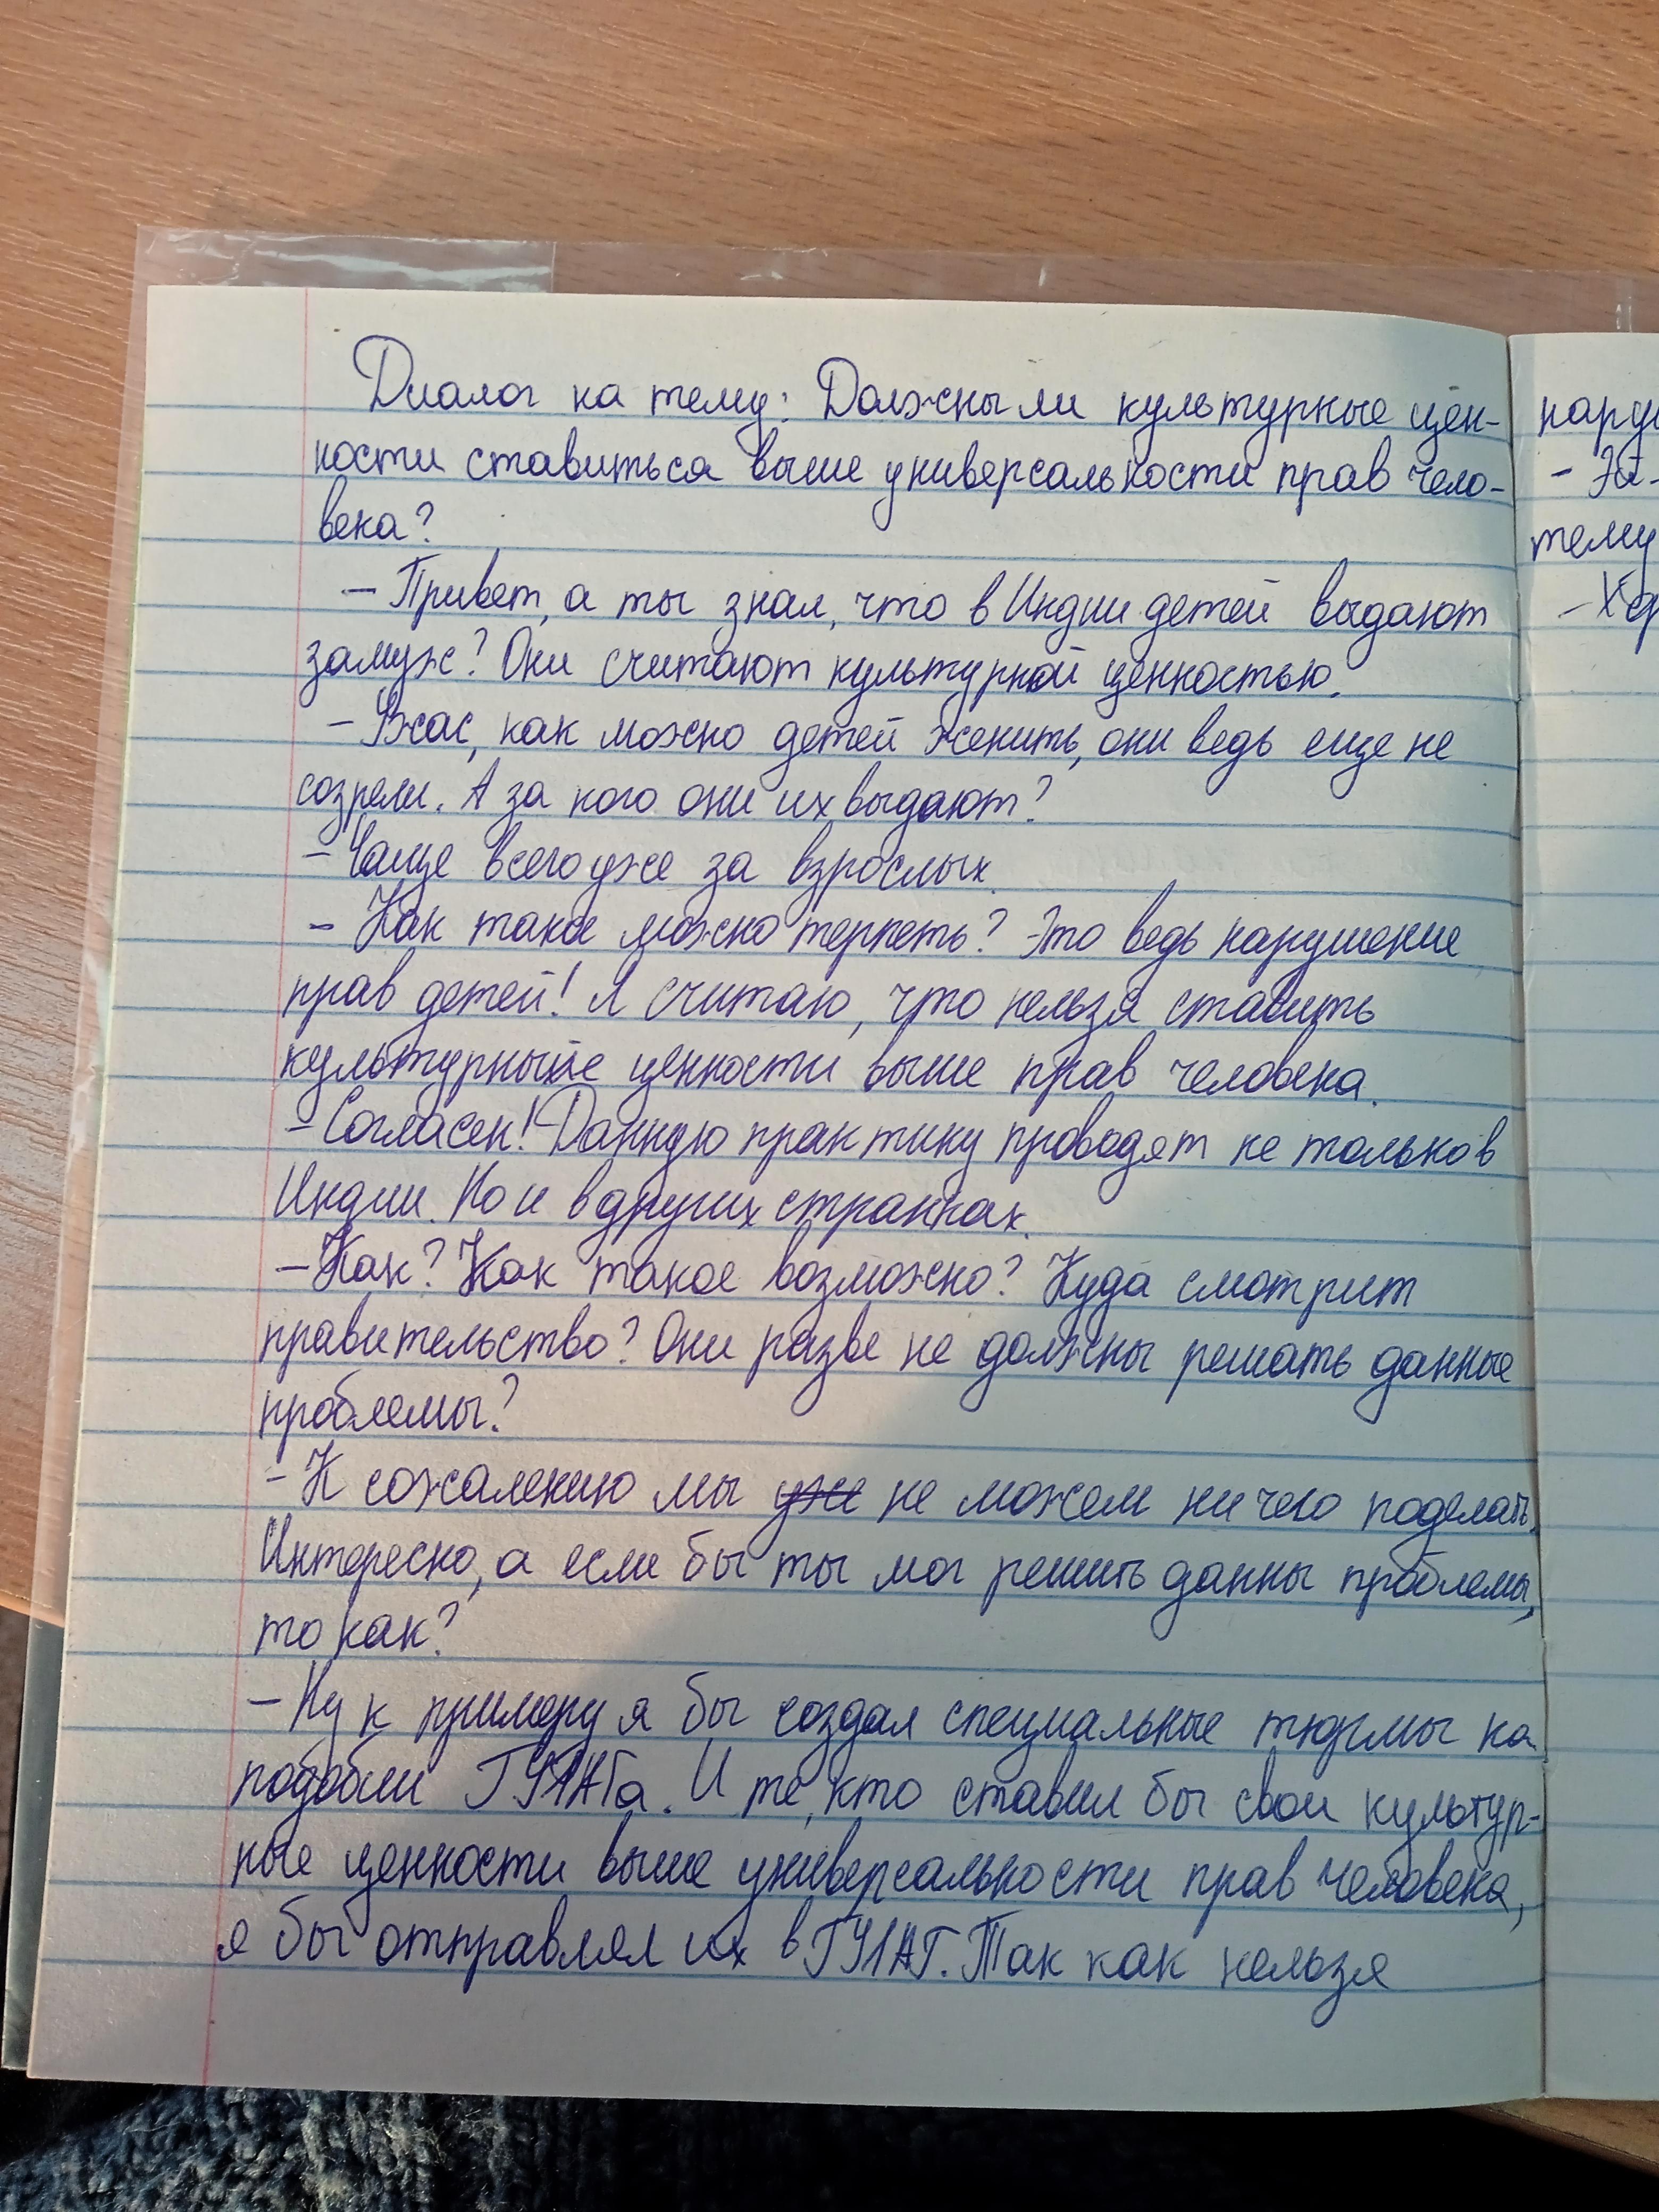 Диалог на тему: Должны ли культурные цен-
ности ставиться выше универсальности прав чело-
века?
- Привет, а ты знал, что в Индии детей выдают
замуж? Они считают культурной ценностью.
- Ужас, как можно детей женить, они ведь еще не
созрели. А за кого они их выдают?
- Чаще всего уже за взрослых.
- Как такое можно терпеть? Это ведь нарушение
прав детей! Я считаю, что нельзя ставить
культурные ценности выше прав человека.
- Согласен! Данную практику проводят не только в
Индии. Но и в других странах.
- Как? Как такое возможно? Куда смотрит
правительство? Они разве не должны решать данные
проблемы?
- К сожалению мы уже не можем ничего поделать.
Интересно, а если бы ты мог решить данны проблемы,
то как?
- Ну к примеру я бы создал специальные тюрмы на
подобии ГУЛАГа. И те, кто ставил бы свои культур-
ные ценности выше универсальности прав человека,
я бы отправлял их в ГУЛАГ. Так как нельзя
тему